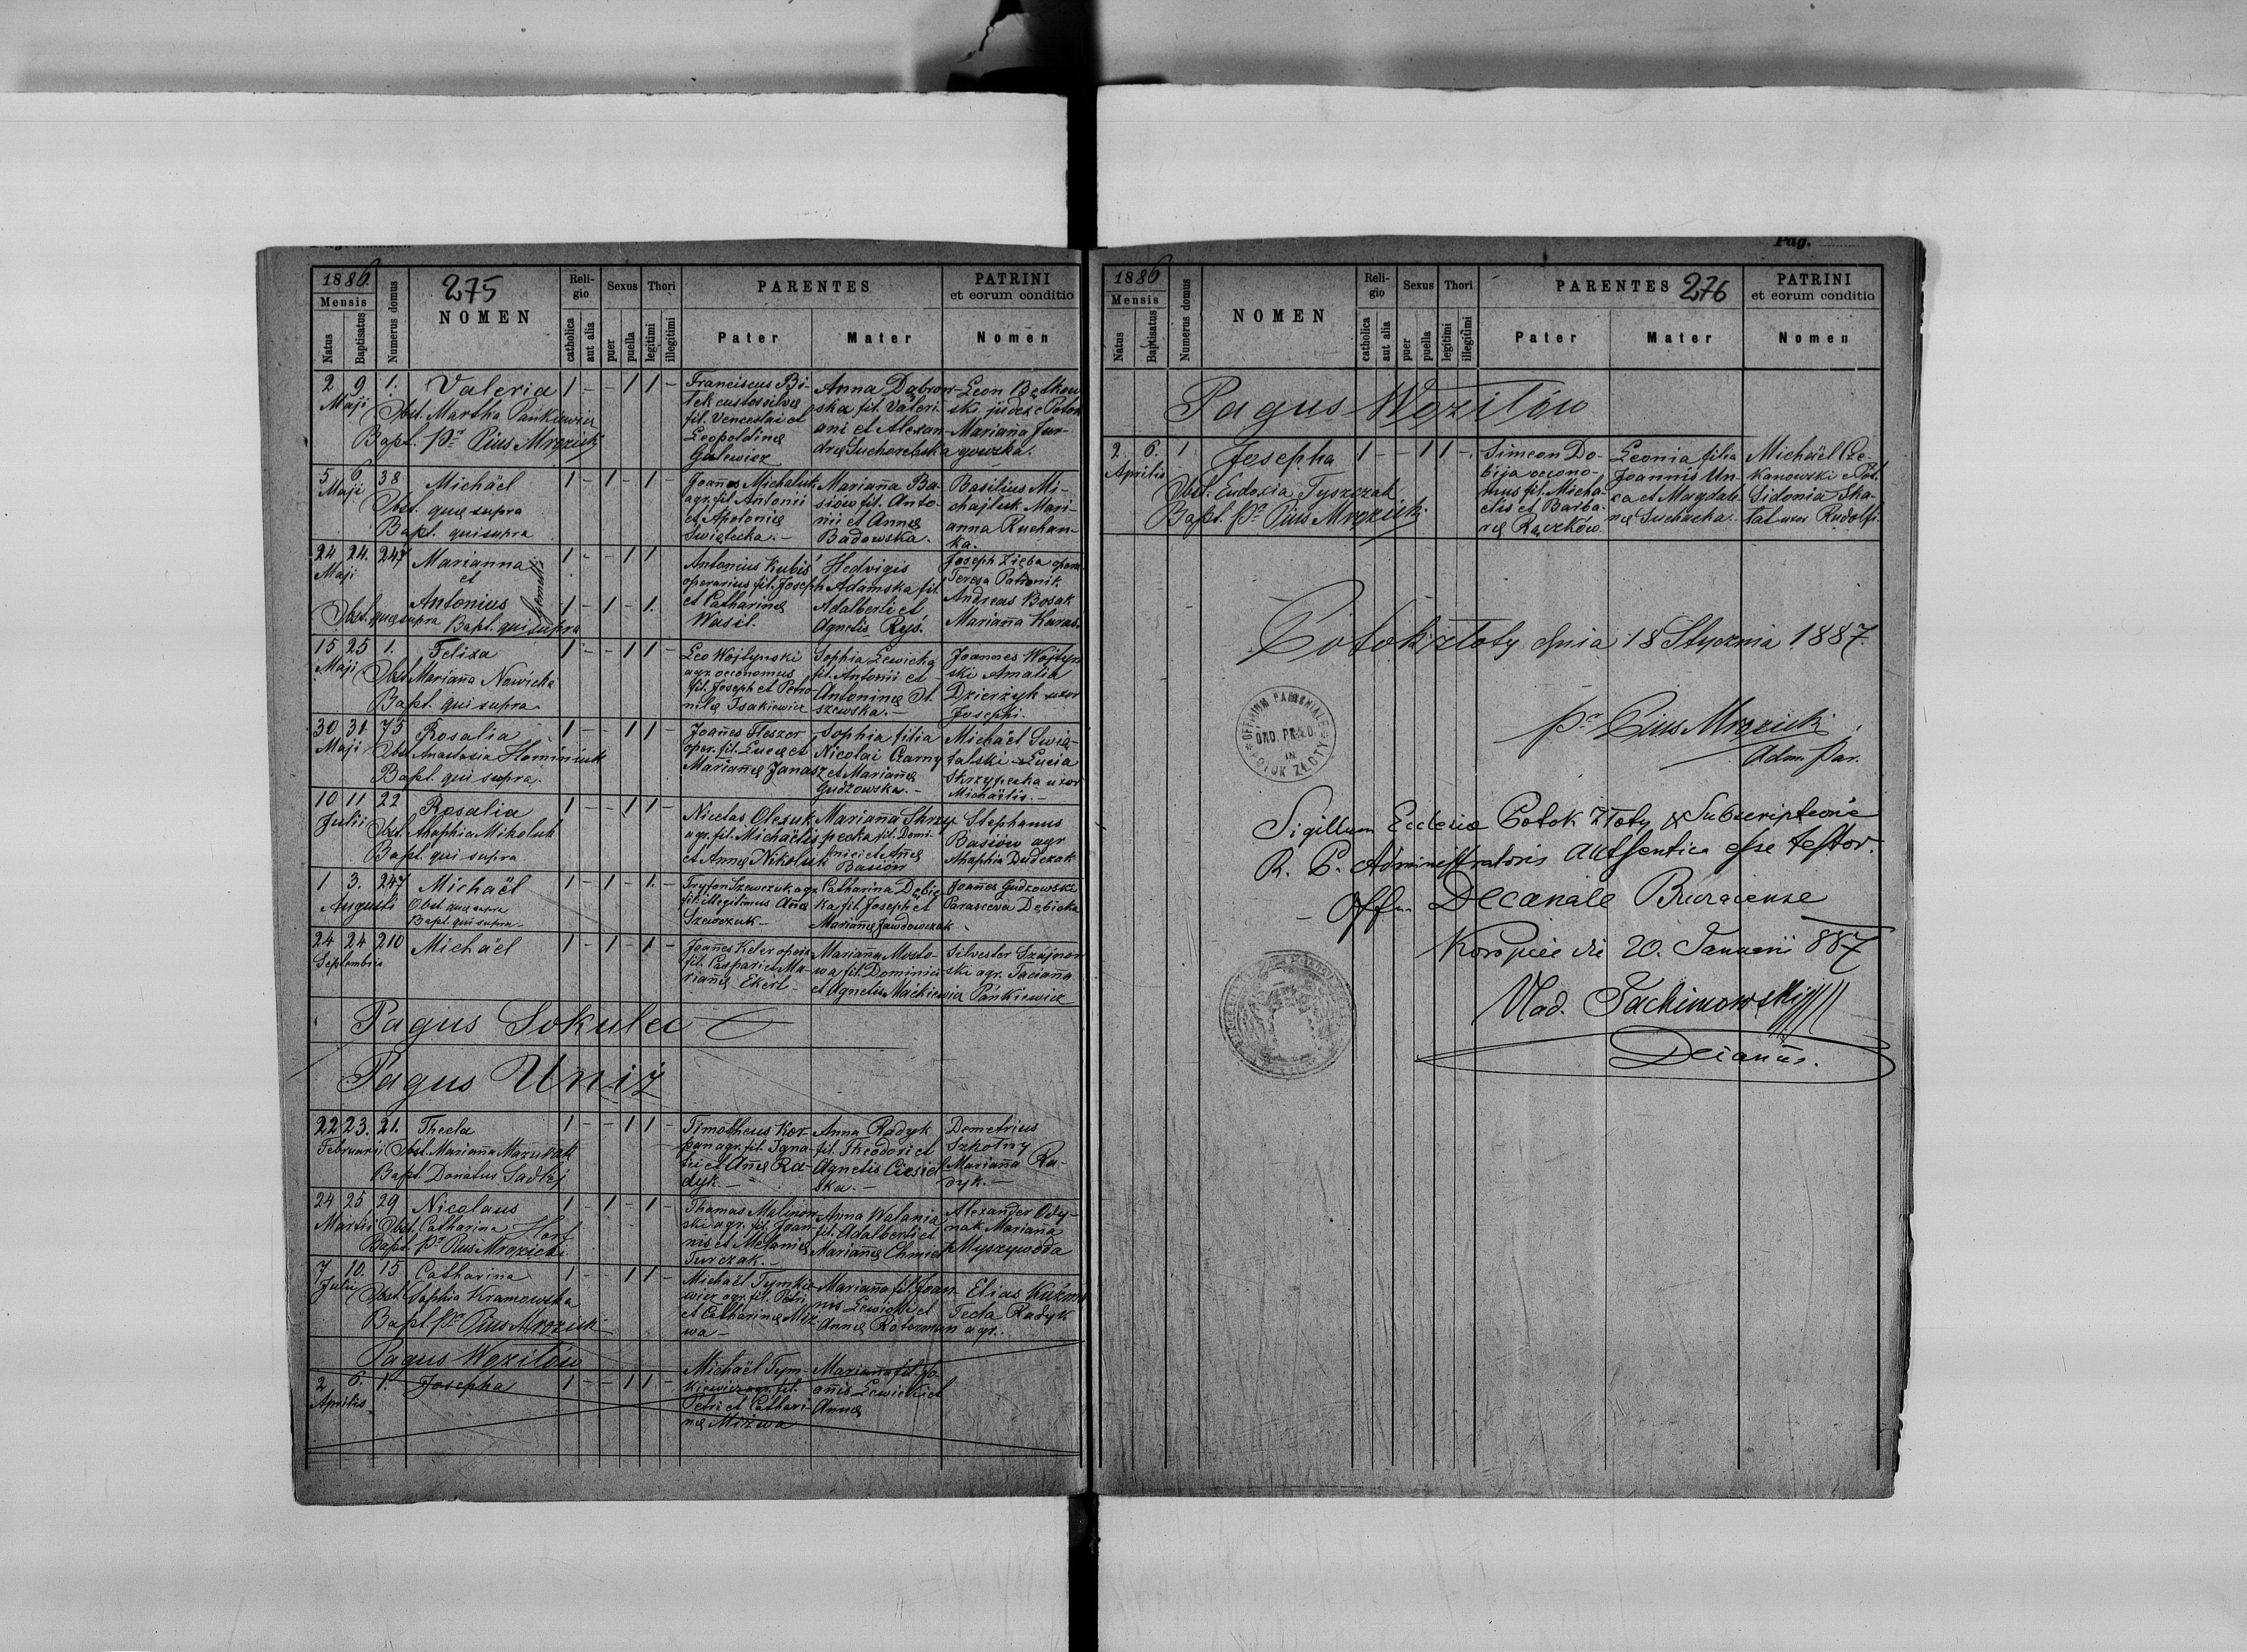 1886.
275
Mensis
Natus
Baptisatus
Numerus domus
NOMEN
Reli-
gio
catholica
aut alia
Sexus
puer
puella
Thori
legitimi
illegitimi
PARENTES
Pater
Mater
PATRINI
et eorum conditio
Nomen
2 9 1. Valeria 1 - - 1 1 -
Maji
Obst. Martha Pańkiewicz
Bapt. Pr Pius Mrozicki
Franciscus Bi-
tek custos silvę
fil. Venceslai et
Leopoldinę
Galewicz
Anna Dąbrow-
ska fil. Valeri-
ani et Alexan-
drę Suchorebska
Leon Bętkow
ski judex e Potok
Marianna Jur-
gowska.
5 6 38 Michaël 1 - 1 - 1 -
Maji
Obst. quę supra
Bapt. qui supra
Joannes Michaluk
agr. fil. Antonii
et Apolonię
Swiątecka.-
Marianna Ba-
siów fil. Anto-
nii et Annę
Badowska.
Basilius Mi-
chajluk Mari-
anna Ruchan-
ka.
24 24. 247 Marianna 1 - - 1 1
Maji
et
Antonius 1 - 1 - 1.
Gemelli
Obst. quę supra Bapt. qui supra
Antonius Kubiś
operarius fil. Joseph
et Catharinę
Wasil.
Hedvigis
Adamska fil.
Adalberti et
Agnetis Ryś.
Joseph Zięba opera
Teresa Patronik
Andreas Bosak
Marianna Karaś.
15 25 1. Felixa 1 - - 1 1 -
Maji
Obst. Marianna Nowicka
Bapt. qui supra
Leo Wojtynski
agr. oeconomus
fil. Joseph et Petro-
nilę Isakiewicz
Sophia Lewicka
fil. Antonii et
Antoninę Ol
szewska.-
Joannes Wojtyn
ski Amalia
Dzierżyk uxor
Josephi.
30 31 75 Rosalia 1 - - 1 1 -
Maji
Obst. Anastasia Hominiuk
Bapt. qui supra.
Joannes Fleszer
oper. fil. Lucę et
Mariannę Janasz
Sophia filia
Nicolai Czarny
et Mariannę
Gudzowska.-
Michaël Swią-
talski Lucia
Skrzypecka uxor
Michaëlis.-
10 11 22 Rosalia 1 - - 1 1 -
Julii
Obst. Ahaphia Mikoluk
Bapt. qui supra
Nicolas Olesuk
agr. fil. Michaëlis
et Annę Nikoluk
Marianna Skrzy
pecka fil. Domi-
nici et Annę
Basiów
Stephanus
Basiów agr
Ahaphia Dudczak
1 3. 247 Michaël 1 - 1 - 1. -
Augusti
Obst. quę supra
Bapt. qui supra-
Tryfon Szewczuk agr.
fil. illegitimus Annę
Szewczuk-
Catharina Dębic
ka fil. Joseph et
Mariannę Jawdowczak
Joannes Gudzowski
Parascevia Dębicka
24 24 210 Michaël 1 - 1 - 1 -
Septembris
Joannes Keler opera
fil. Caspari et Ma-
riannę Ekert-
Marianna Mosto-
wa fil. Dominici
et Agnetis Maćkiewicz
Silvester Szajnow
ski agr. Tacianna
Pańkiewicz
Pagus Sokulec
Pagus Uniż
22 23. 21. Thecla 1 - - 1 1 -
Februarii
Obst. Marianna Mazurkak
Bapt. Donatus Sadkij
Timotheus Kor-
pan agr. fil. Igna-
tii et Annę Ra-
dyk.-
Anna Radyk
fil. Theodori et
Agnetis Ciesiel
ska.-
Demetrius
Szkolny
Marianna Ra-
dyk.-
24 25 29 Nicolaus 1 - 1 - 1 -
Martii
Obst. Catharina Hart
Bapt. Pr Pius Mrozicki
Thomas Malinow-
ski agr. fil. Joan-
nis et Melanię
Turczak.-
Anna Walania
fil. Adalberti et
Mariannę Chmiel
Alexander Ody-
nak Marianna
Myszywoda
7 10. 15 Catharina 1 - - 1 1 -
Julii
Obst. Sophia Kramowska
Bapt. Pr Pius Mrozicki
Michaël Tymkie
wicz agr. fil. Petri
et Catharinę Miż
wa-
Marianna fil. Joan-
nis Lewicki et
Annę Roterman
Elias Kuźma
Tecla Radyk
agr.
Pagus Wozilów
2 6. 1. Josepha 1 - - 1 1 -
Aprilis
Michaël Tym-
kiewicz agr. fil.
Petri et Cathari-
nę Miżwa
Marianna fil. Jo
annis Lewicki et
Annę
Pag.
1886
276
Mensis
Natus
Baptisatus
Numerus domus
NOMEN
Reli-
gio
catholica
aut alia
Sexus
puer
puella
Thori
legitimi
illegitimi
PARENTES
Pater
Mater
PATRINI
et eorum conditio
Nomen
Pagus Wozilów
2 6. 1 Josepha 1 - - 1 1 -
Aprilis
Obst. Eudoxia Tyszczak
Bapt. Pr Pius Mrozicki
Simeon Do-
bija oecono-
mus fil. Micha-
elis et Barba-
rę Rączków
Leonia filia
Joannis Un-
ca et Magdale-
nę Suchacka.
Michaël Cze-
kanowski e Pot.
Sidonia Ska-
lat uxor Rudolfi.
Potok złoty dnia 18 Stycznia 1887.
OFFICIUM PAROCHIALE
ORD. PRÆD.
IN
POTOK ZŁOTY
Pr Pius Mrozicki
Adm. Par.
Sigillum Ecclesiæ Potok Złoty & Subscriptione
R. P. Administratoris authentica esse testor.
Offm Decanale Buczaciense
Koropiec die 20. Januarii 887
Vlad. Jachimowski
Decanus.